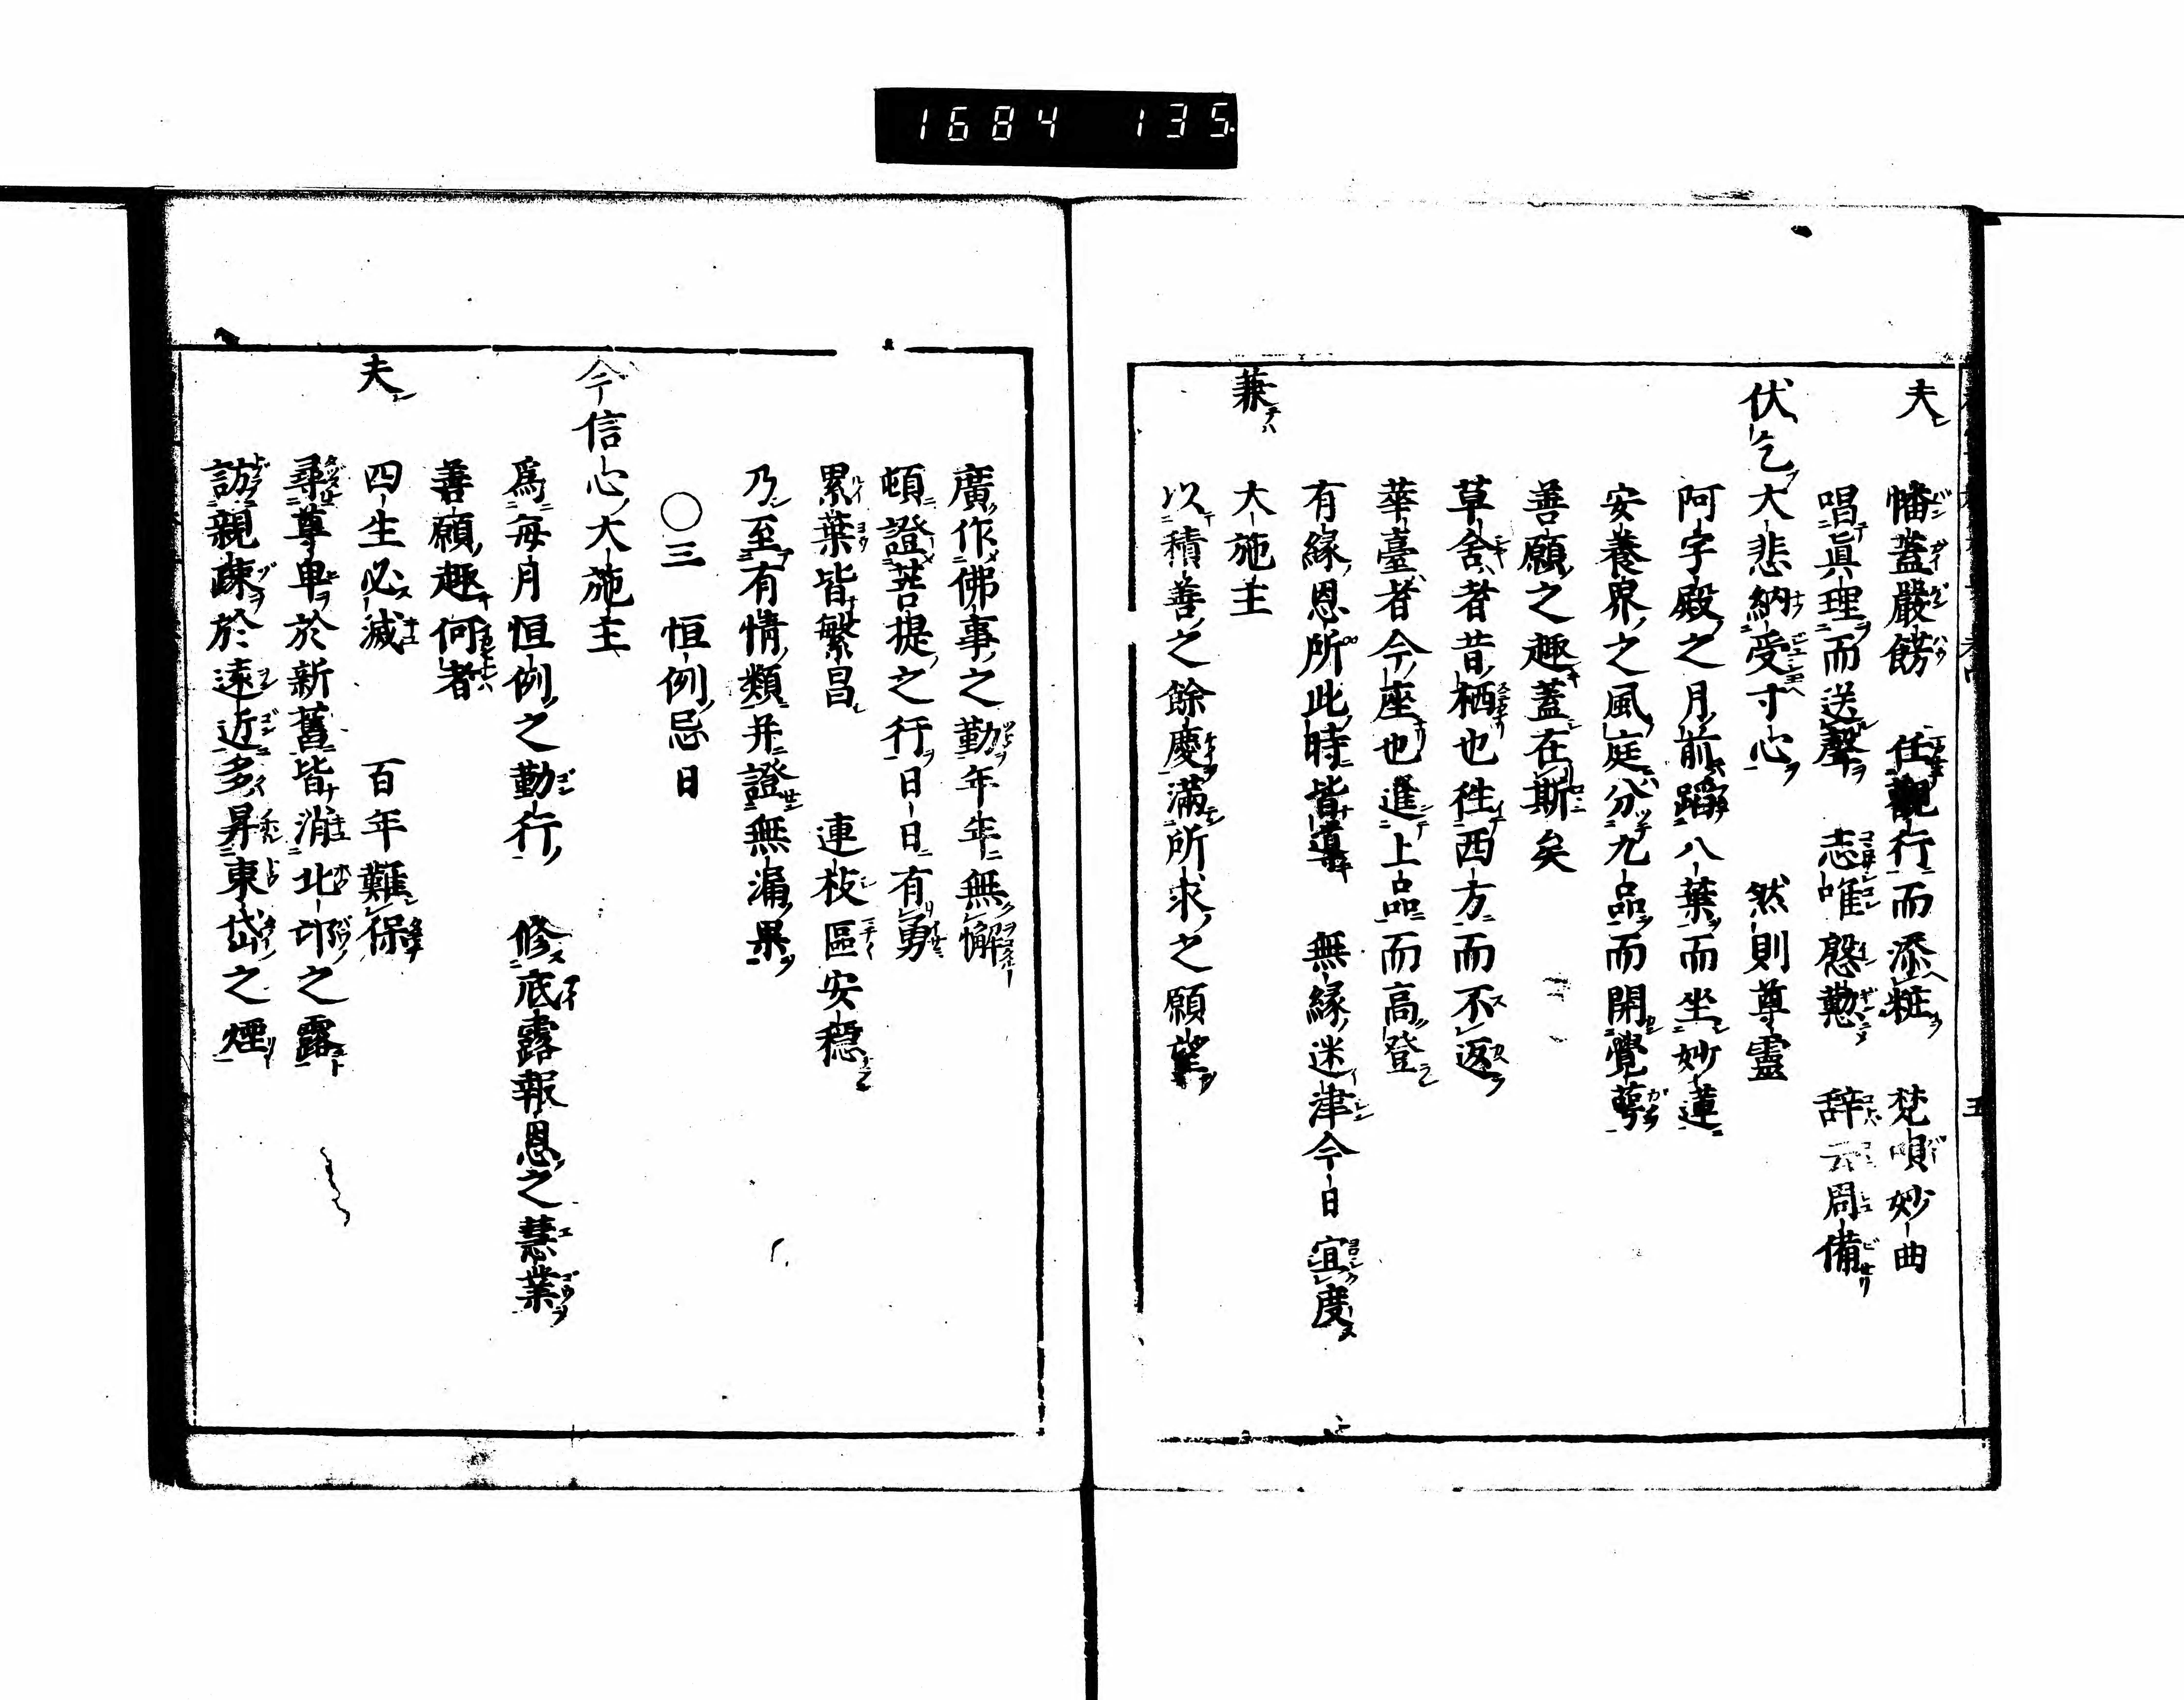 1684 135
夫 幡蓋嚴餝 任觀行而添粧 梵唄妙曲
唱眞理而送聲 志唯慇懃 辞云周備
伏乞大悲納受寸心 然則尊靈
阿字殿之月前蹈八葉而坐妙蓮
安養界之風庭分九品而開覺蕚
善願之趣蓋在斯矣
草舍者昔栖也徃西方而不返
華臺者今座也進上品而高登
有縁恩所此時皆導 無縁迷津今日宜度
兼 大施主
以積善之餘慶滿所求之願望
廣作佛事之勤年年無懈
頓證菩提之行日日有勇
累葉皆繁昌 連枝區安穩
乃至有情類并證無漏果
〇三 恒例忌日
今信心大施主
爲毎月恒例之勤行 修底露報恩之慧業
善願趣何者
夫 四生必滅 百年難保
尋尊卑於新舊皆消北邙之露
訪親疎於遠近多昇東岱之煙